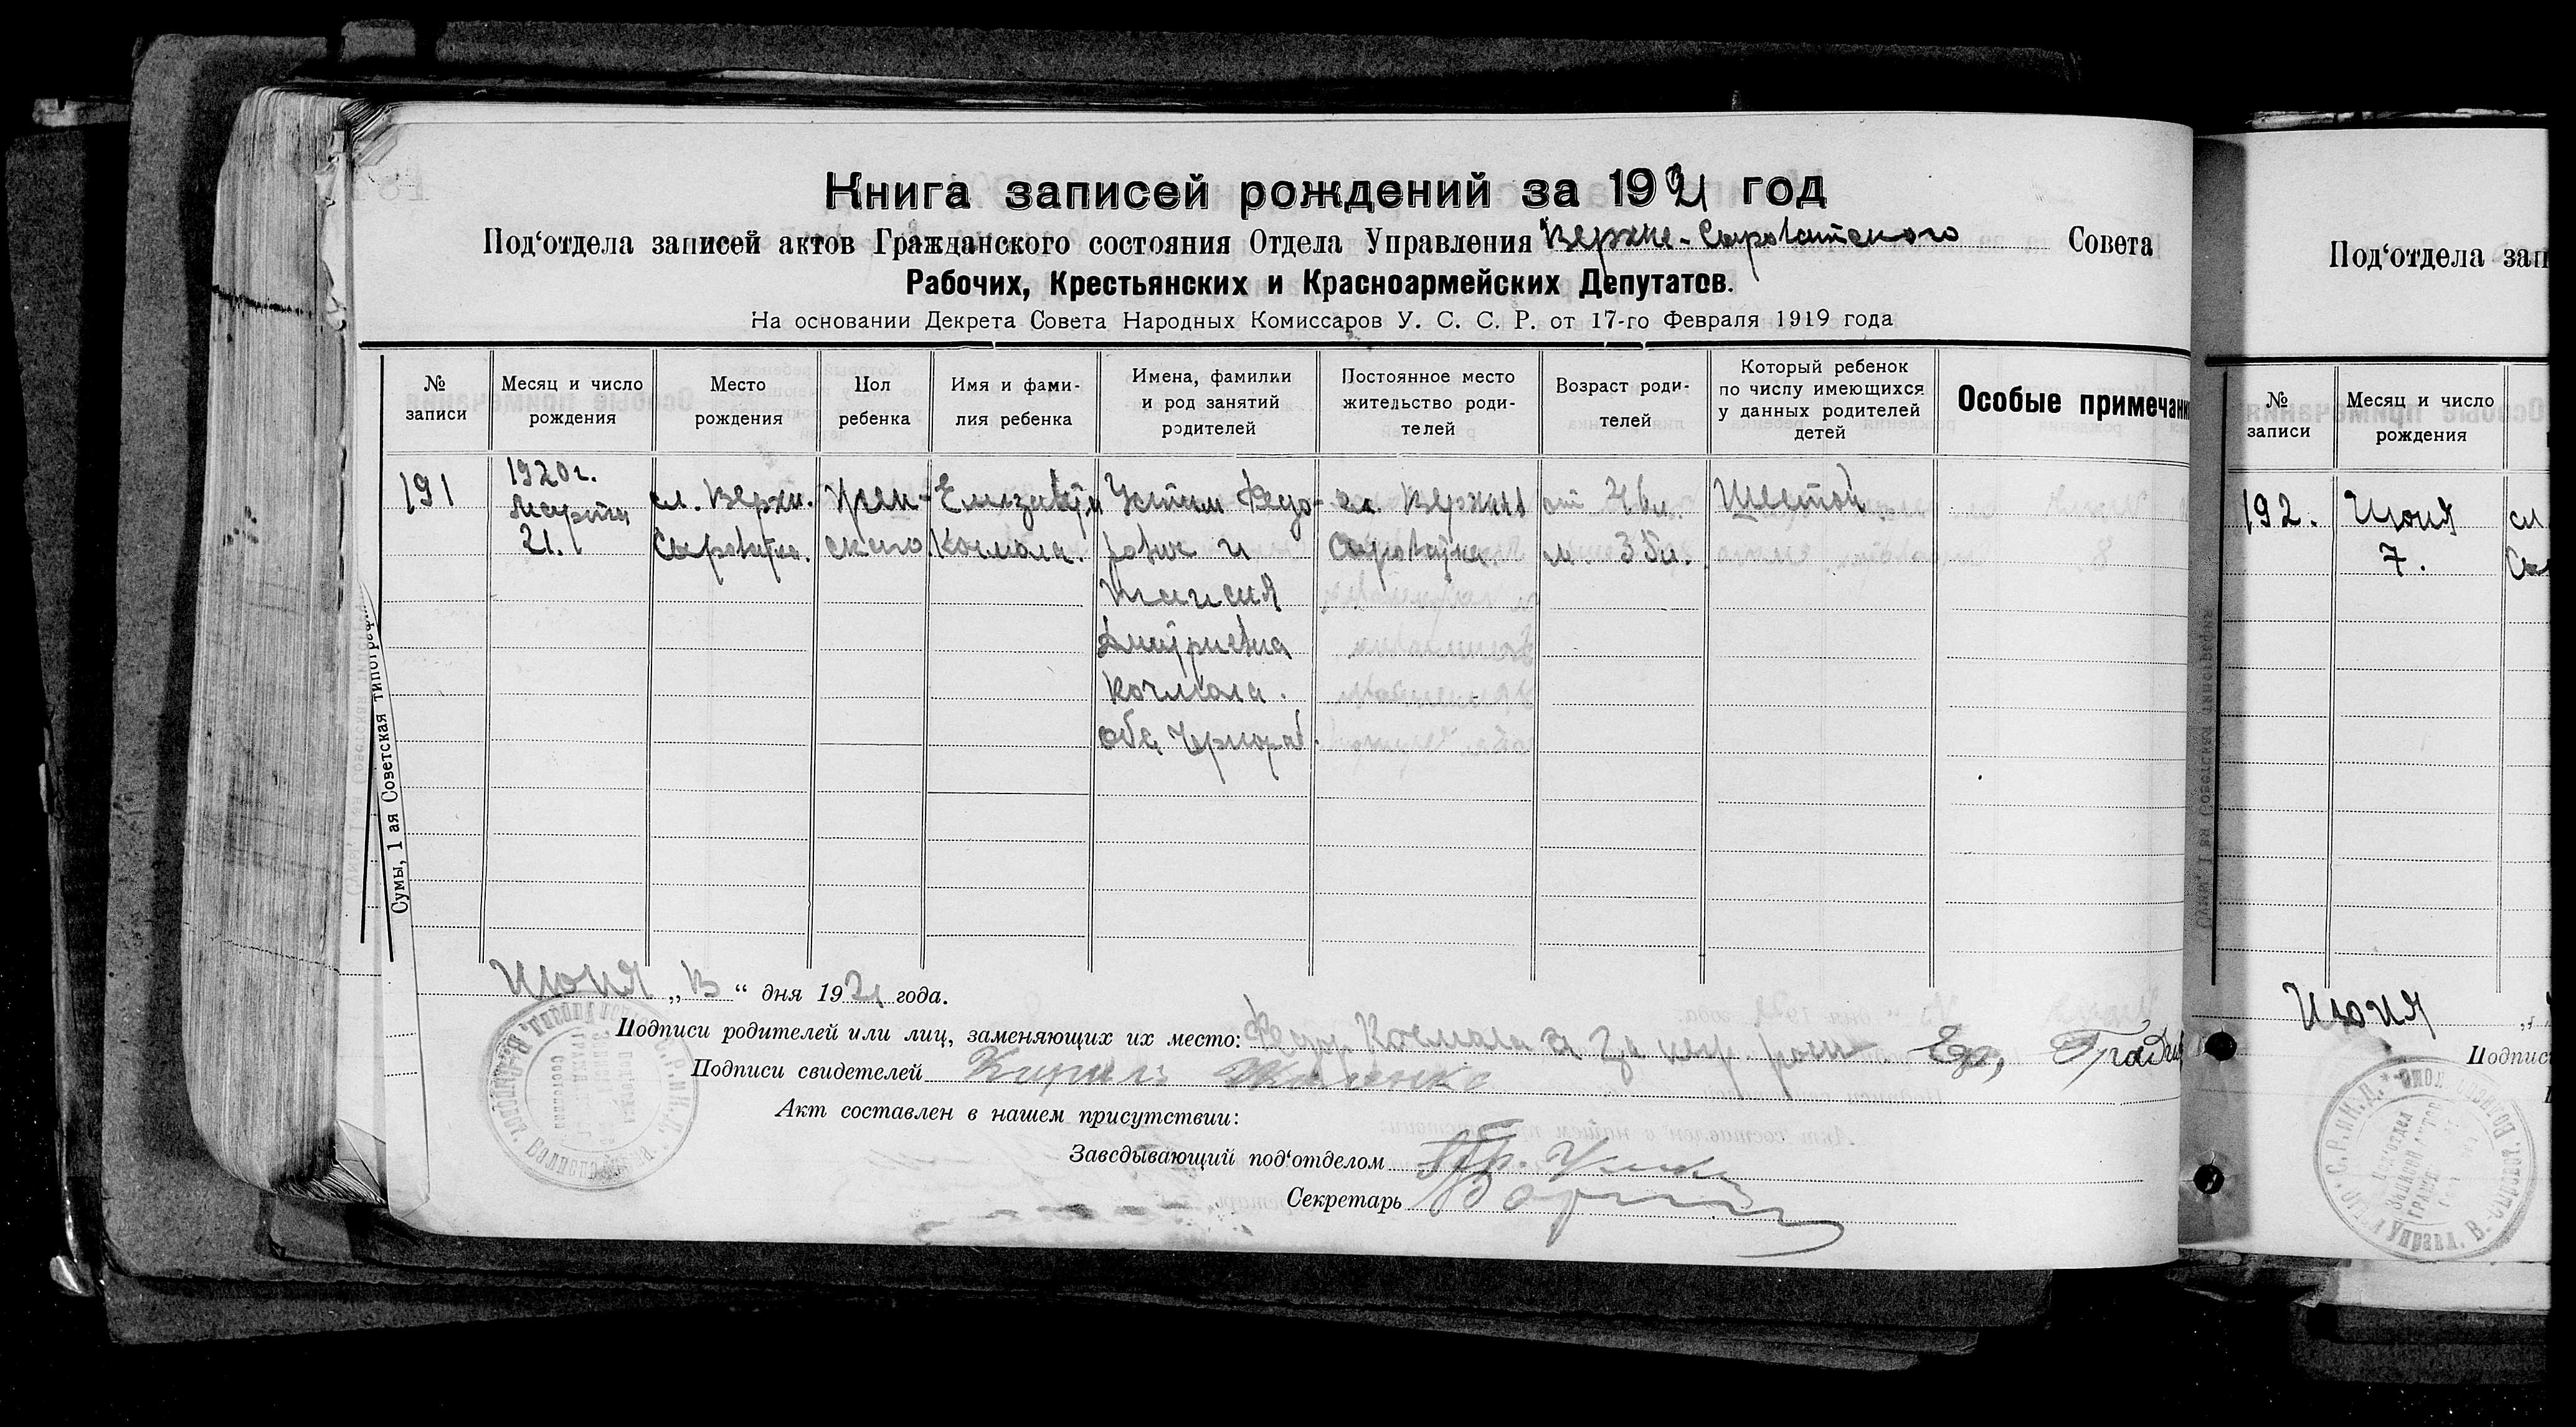 Книга записей рождений за 1921 год
Под‘отдела записей актов Гражданского состояния Отдела Управления Верхне-Сыроватского Совета
Рабочих, Крестьянских и Красноармейских Депутатов.
На основании Декрета Совета Народных Комиссаров У. С. С. Р. от 17-го Февраля 1919 года
№ записи
Месяц и число рождения
Место рождения
Пол ребенка
Имя и фами-
лия ребенка
Имена, фамилии
и род занятий
родителей
Постоянное место
жительство роди-
телей
Возраст роди-
телей
Который ребенок
по числу имеющихся
у данных родителей
детей
Особые примечани
191
1920 г.
Марта
21.
сл. Верхн.
Сыроватка.
Жен-
ского
Елизавета
Кочмала.
Устин Федо-
рович и
Таисия
Дмитриевна
Кочмала.
оба Чернораб.
сл. Верхняя
Сыроватка.
от 46 л.
м. 35 л.
Шестой
Июня „13“ дня 1921 года.
Подписи родителей или лиц, заменяющих их место:
Кочмала
Подписи свидетелей Кирилл
Акт составлен в нашем присутствии:
Заведывающий под‘отделом
Секретарь
Сумы, 1 ая Советская типограф
Под‘отдела зап
№ записи
Месяц и число
рождения
192.
Июня
7.
сл
Сы
Июня
Подпис